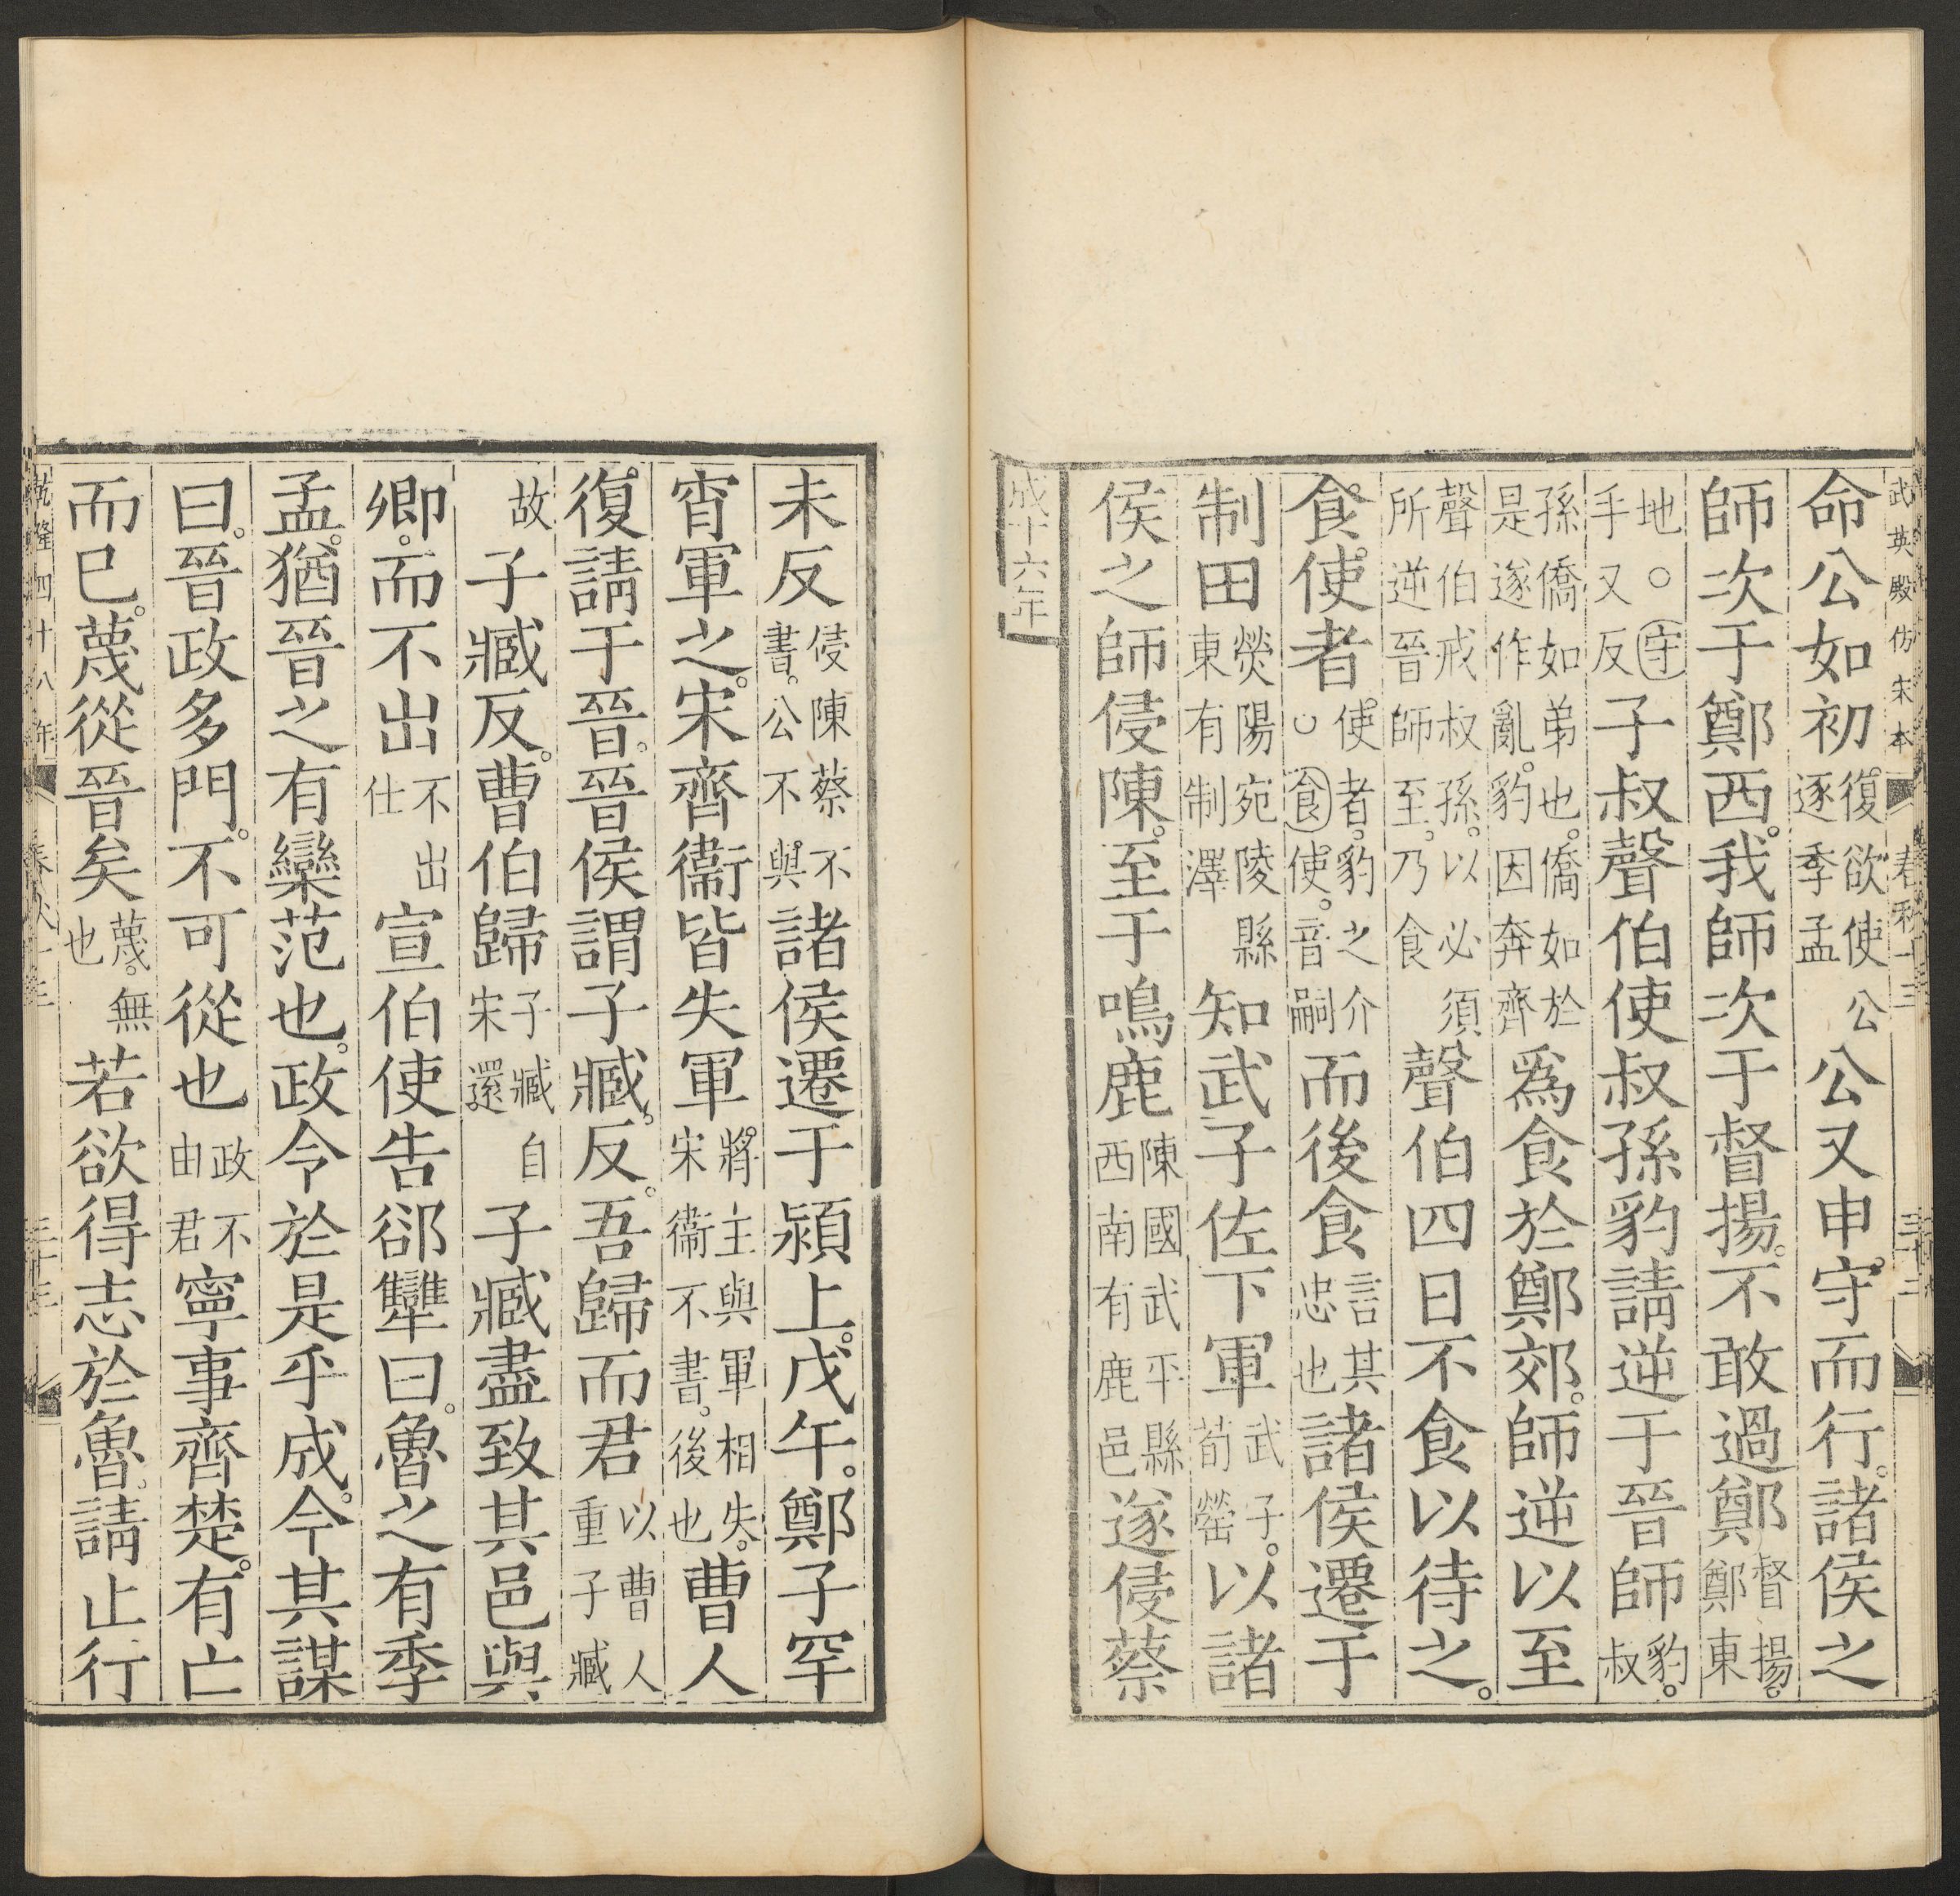 武英殿仿宋本 春秋十三 三十二
命公如初。復欲使公逐季孟公又申守而行。諸侯之
師次于鄭西。我師次于督揚。不敢過鄭督揚。鄭東
地。○守手又反子叔聲伯使叔孫豹請逆于晉師豹。叔
孫僑如弟也。僑如於是遂作亂。豹因奔齊爲食於鄭郊。師逆以至
聲伯戒叔孫。以必須所逆晉師至。乃食聲伯四日不食以待之。
食使者。使者。豹之介○食使。音嗣而後食言其忠也諸侯遷于
制田熒陽宛陵縣東有制澤知武子佐下軍武子。荀罃以諸
侯之師侵陳。至于鳴鹿陳國武平縣西南有鹿邑遂侵蔡
成十六年
未反侵陳蔡不書。公不與諸侯遷于潁上。戊午。鄭子罕
宵軍之。宋齊衞皆失軍將主與軍相失。宋衞不書。後也曹人
復請于晉。晉侯謂子臧。反。吾歸而君以曹人重子臧
故子臧反。曹伯歸子臧自宋還子臧盡致其邑與
卿。而不出不出仕宣伯使告郤犫曰。魯之有季
孟。猶晉之有欒范也。政令於是乎成。今其謀
曰。晉政多門。不可從也政不由君寧事齊楚。有亡
而已。蔑從晉矣蔑。無也若欲得志於魯。請止行
乾隆四十八年 春秋十三